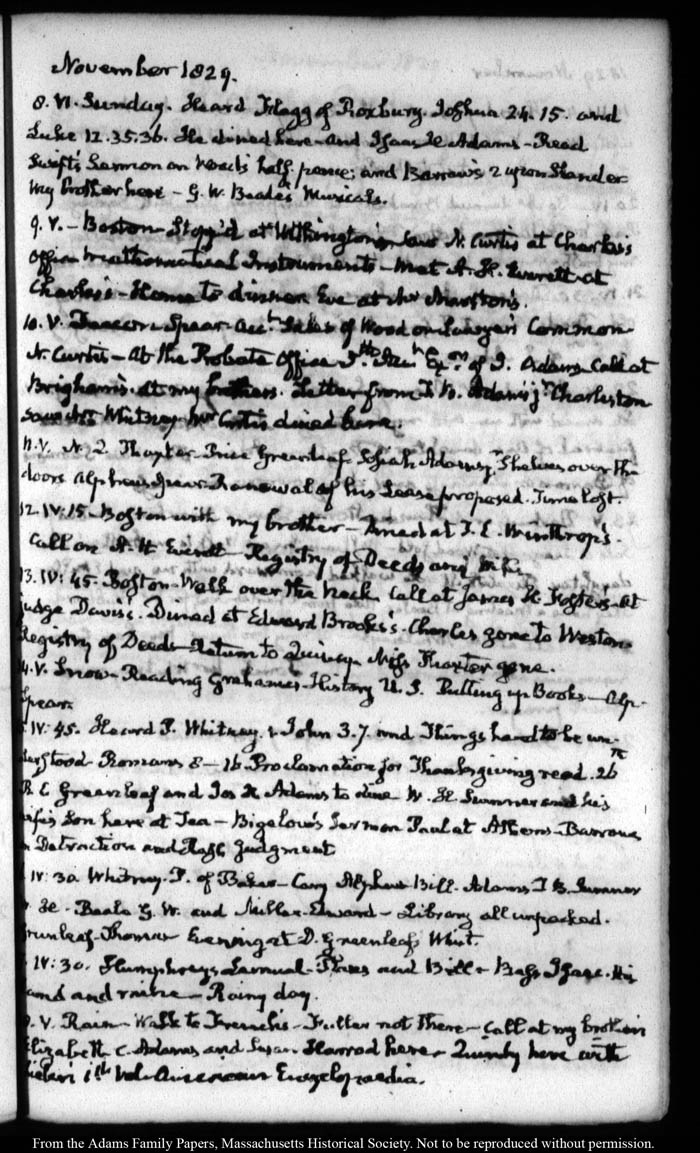 November 1829.
8. VI. Sunday. Heard Flagg of Roxbury. Joshua 24. 15. and
Luke 12. 35. 36. He dined here and Isaac H Adams - Read
Swift's Sermon on Wood's half-pence; and Barrow's 2 upon Slander
My brother here - G. W. Beale's Musicals.
9. V. - Boston - Stopp'd at Withington's saw N. Curtis at Charles's
Office Mathematical Instruments - Met A. H. Everett at
Charles's - Home to dinner Eve at Mr Marston's.
10. V. Deacon Spear Acct Sales of Wood on Lawyer's Common
N. Curtis - At the Probate Office of J. Adams Call at
Brigham's. at my brothers. Letter from T. B. Adams jr. Charleston
saw Mrs Whitney Mr Curtis dined here.
11. V. N. 2 Thayter Price Greenleaf. Josiah Adams, Shelves over the
doors Alpheus Spear Renewal of his Lease proposed. Time lost.
12. IV: 15 - Boston with my brother - Dined at T. L. Winthrop's.
Call on A. H Everett - Registry of Deeds
13. IV: 45. Boston - Walk over the Neck. Call at James H Foster's - At
Judge Davis's. Dined at Edward Brooks's. Charles gone to Weston
Registry of Deeds - Return to Quincy - Miss Thaxter gone.
14. V. Snow - Reading Grahame's History U. S. Putting up Books - Alp.
Spear.
IV: 45. Heard P. Whitney. John 3. 7. and Things hard to be un-
derstood - Romans 8 - 16 Proclamation for Thanksgiving read. 26
P. E Greenleaf and Jos H Adams to dine W. H. Sumner and his
wife's Son here at Tea - Bigelow's Sermon Paul at Athens - Barrow
on Detraction and Rash Judgment
IV: 30 Whitney. P. of Baker - Cary Alpheus Bill. Adams T B. Sumner
Beale G. W. and Miller Edward - Library all unpacked.
Greenleaf Thomas Evening at D. Greenleaf's Whist.
IV: 30. Humphreys Lemuel and Bill - Bass Isaac. His
Rainy day.
V. Rain - Walk to French's - Fuller not there - Call at my brother's
Elizabeth C. Adams and Susan Harrod here - Quimby here with
Vol. American Encyclopaedia.
From the Adams Family Papers, Massachusetts Historical Society. Not to be reproduced without permission.